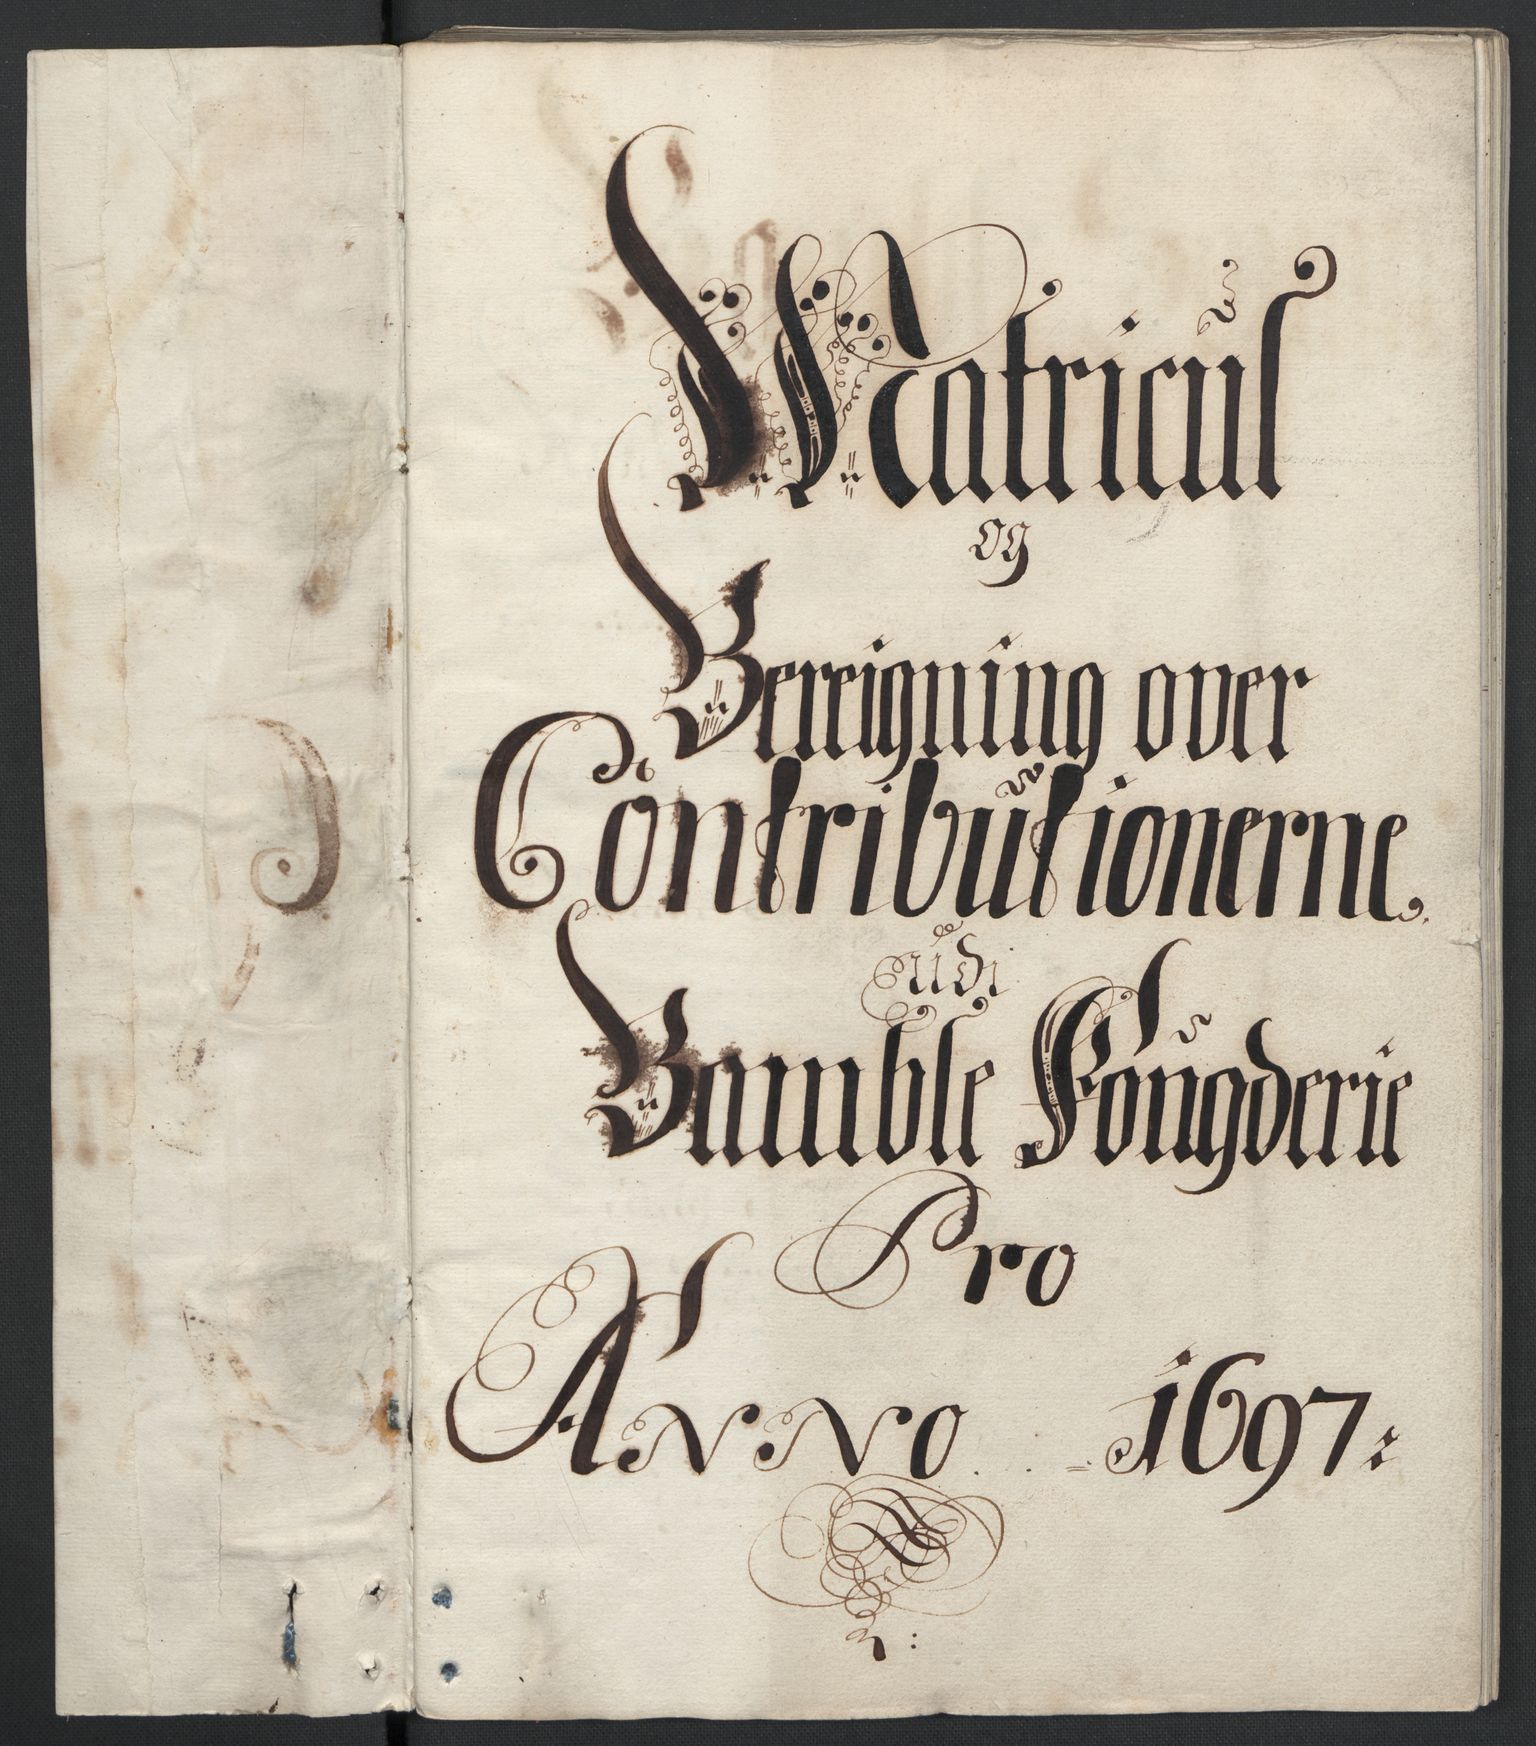 Matricul
og
Bereigning over
Contributionerne
udi
Bamble Fougderie
Pro
Anno 1697: